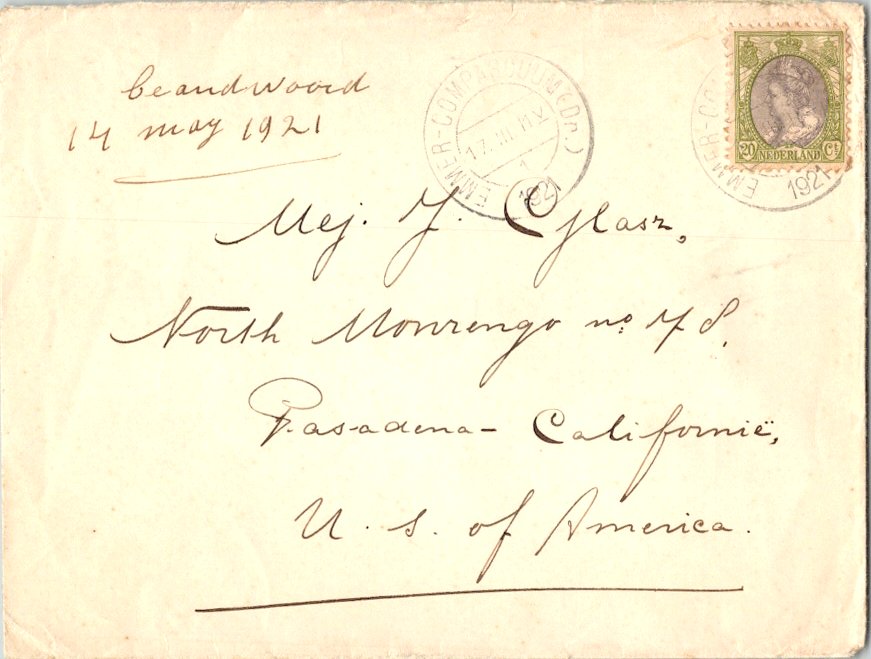 beandwoord
14 may 1921
EMMER-COMPASCUUM (Dr.)
17. III IIV
1
1921
EMMER-CO
1921
20 Ct
NEDERLAND
Mej. J. Glasz,
North Monrengo no 78.
Pasadena - Californië,
U. S. of America.